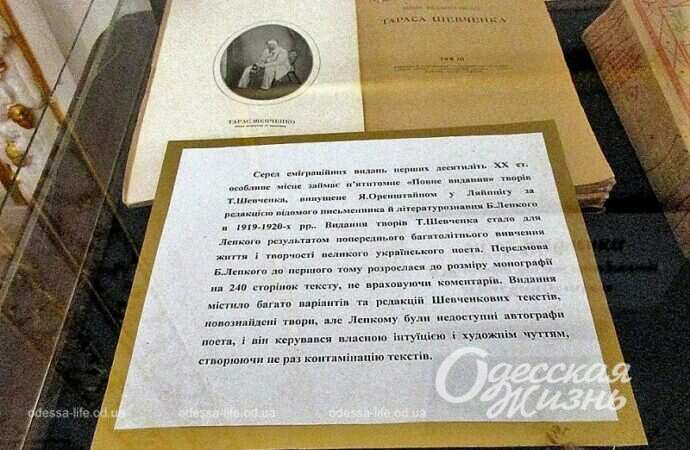 ТАРАСА ШЕВЧЕНКА
ТОМ III
ТАРАС ШЕВЧЕНКО
Серед еміграційних видань перших десятиліть XX ст.
особливе місце займає п'ятитомне «Повне видання» творів
Т.Шевченка, випущене Я.Оренштайном у Ляйпцігу за
редакцією відомого письменника й літературознавця Б.Лепкого
в 1919-1920-х рр.. Видання творів Т.Шевченка стало для
Лепкого результатом попереднього багатолітнього вивчення
життя і творчості великого українського поета. Передмова
Б.Лепкого до першого тому розрослася до розміру монографії
на 240 сторінок тексту, не враховуючи коментарів. Видання
містило багато варіантів та редакцій Шевченкових текстів,
новознайдені твори, але Лепкому були недоступні автографи
поета, і він керувався власною інтуїцією і художнім чуттям,
створюючи не раз контамінацію текстів.
Одесская
Жизнь
odessa-life.od.ua
odessa-life.od.ua
odessa-life.od.ua